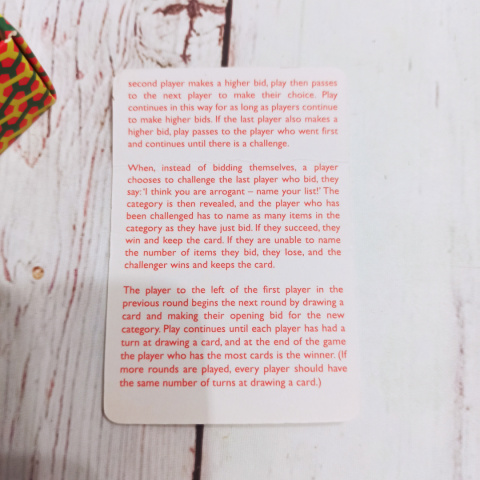 second player makes a higher bid, play then passes
to the next player to make their choice. Play
continues in this way for as long as players continue
to make higher bids. If the last player also makes a
higher bid, play passes to the player who went first
and continues until there is a challenge.
When, instead of bidding themselves, a player
chooses to challenge the last player who bid, they
say: 'I think you are arrogant – name your list!' The
category is then revealed, and the player who has
been challenged has to name as many items in the
category as they have just bid. If they succeed, they
win and keep the card. If they are unable to name
the number of items they bid, they lose, and the
challenger wins and keeps the card.
The player to the left of the first player in the
previous round begins the next round by drawing a
card and making their opening bid for the new
category. Play continues until each player has had a
turn at drawing a card, and at the end of the game
the player who has the most cards is the winner. (If
more rounds are played, every player should have
the same number of turns at drawing a card.)